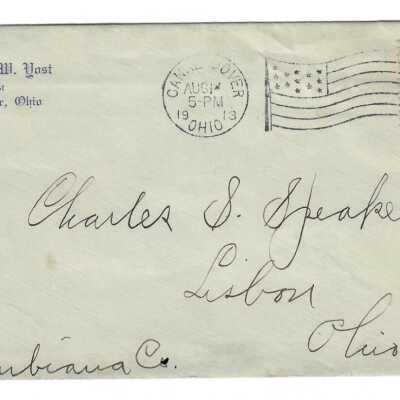 W. Yost
st
r, Ohio
CANAL DOVER
AUG 14
5-PM
1913
OHIO
Charles S. Speake
Lisbon
Ohio
mbiana Co.